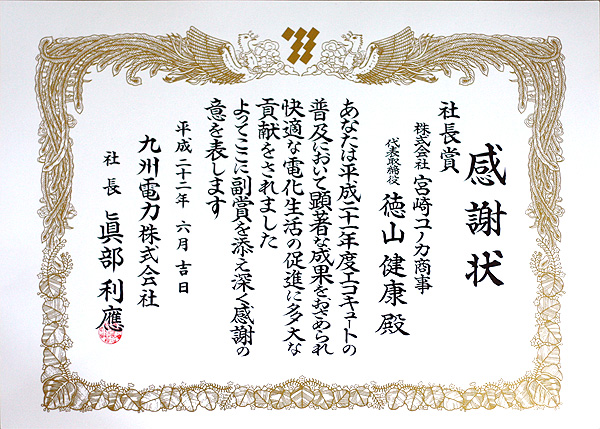 感謝状
社長賞
株式会社 宮崎ユノカ商事
代表取締役 徳山健康 殿
あなたは平成二十一年度エコキュートの
普及において顕著な成果をおさめられ
快適な電化生活の促進に多大な
貢献をされました
よってここに副賞を添え深く感謝の
意を表します
平成二十二年 六月 吉日
九州電力株式会社
社長 眞部利應